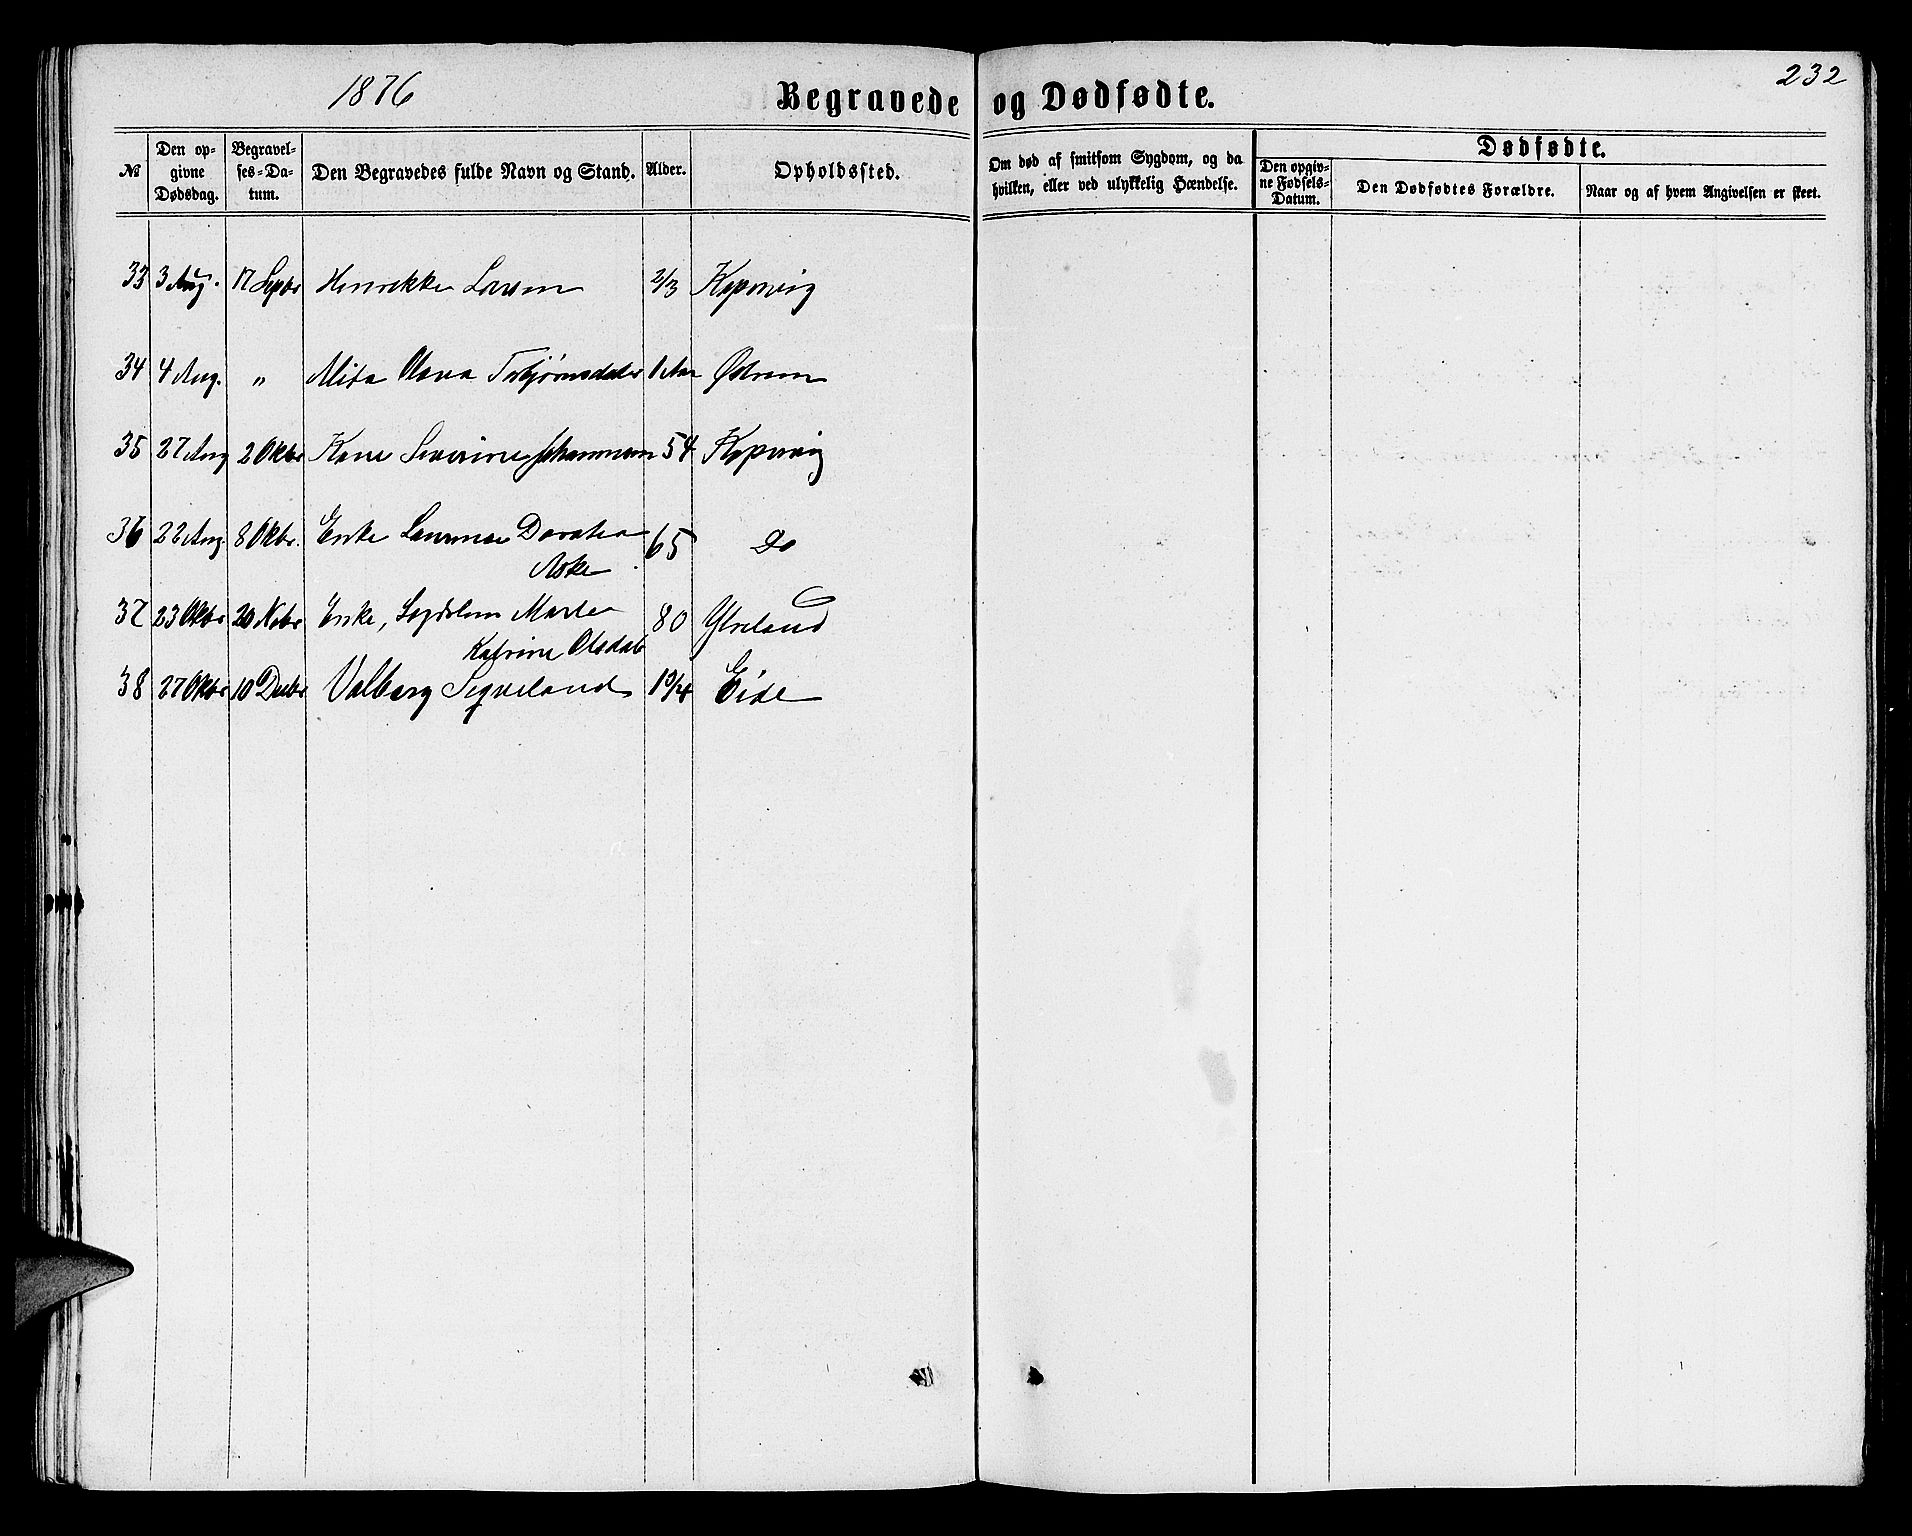 1876
Begravede og Dødfødte.
232
№
Den opgivne Dødsdag.
Begravelses-Datum.
Den Begravedes fulde Navn og Stand.
Alder.
Opholdssted.
Om død af smitsom Sygdom, og da hvilken, eller ved ulykkelig Hændelse.
Dødfødte.
Den opgivne Fødsels-Datum.
Den Dødfødtes Forældre.
Naar og af hvem Angivelsen er skeet.
33 3 Aug. 17 Septbr Henrikke Larsen 2/3 Kopervig
34 4 Aug. " Mita Olava Torbjørnsdatter 1 Aar Østrem
35 27 Aug 2 Oktbr Kane Severine Johannesen 54 Kopervig
36 22 Aug 8 Oktbr. Enke Dorothea 65 Do
Aske
37 23 Oktbr 20 Nvbr Enke, Marta 80 Ytreland
Katrine Olsdatr
38 27 Oktbr 10 Decbr Valborg Sqveland 1 0/4 Eide